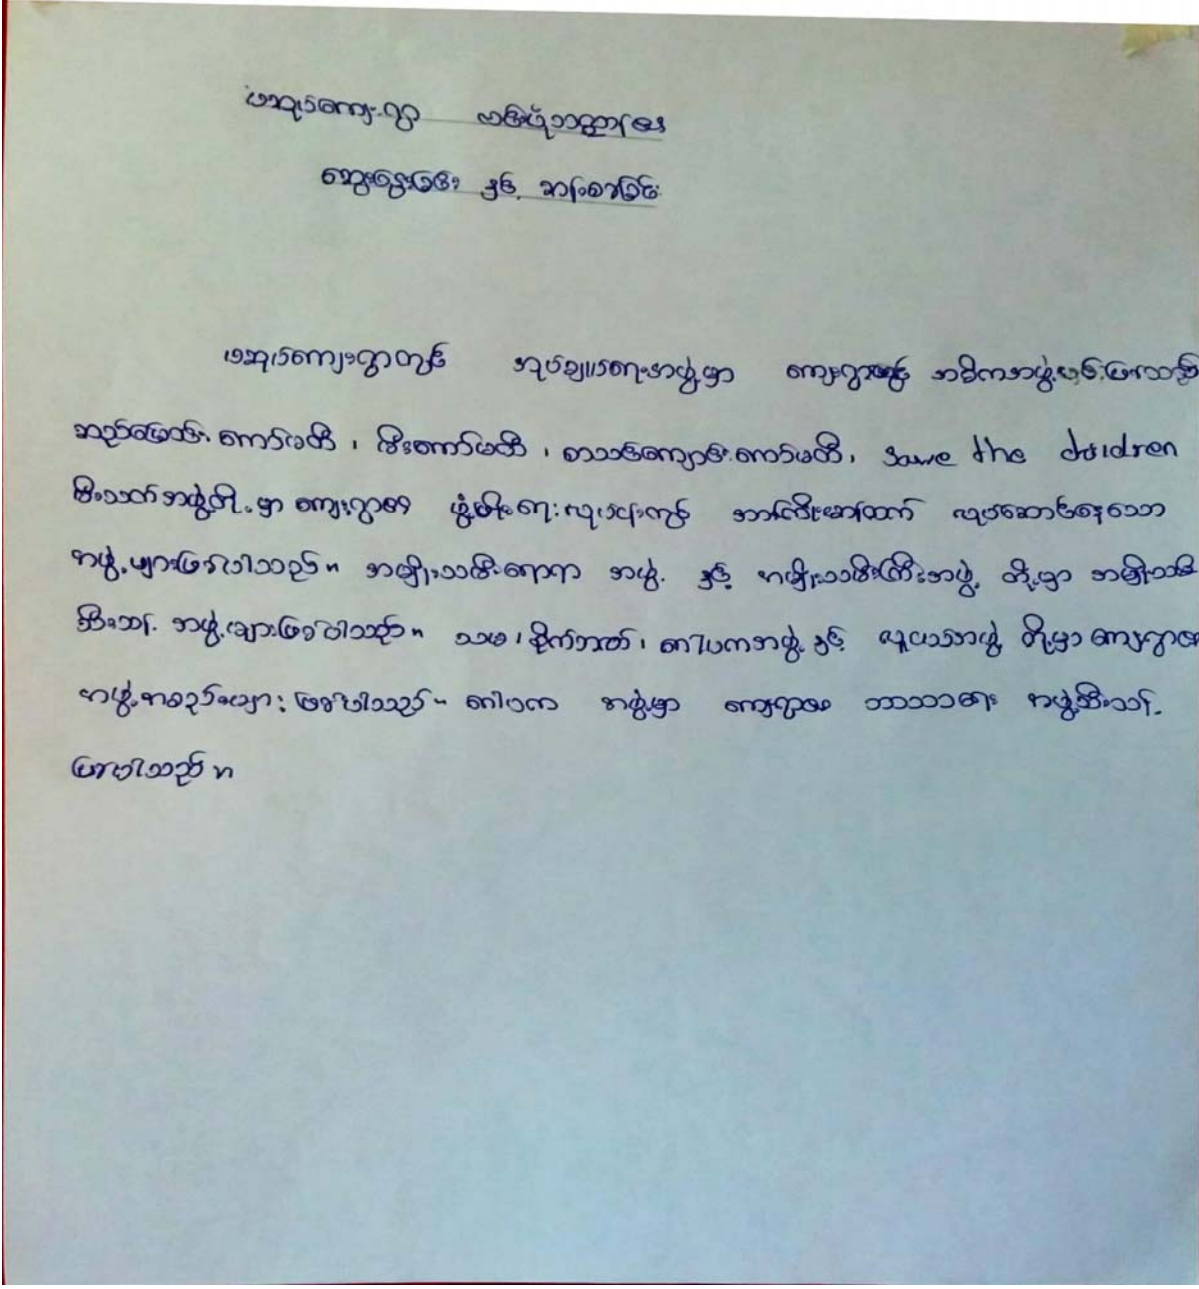 ကျေးရွာ
ဆွေးနွေးခြင်း နှင့် ဆန်းစစ်ခြင်း
ကျေးရွာတွင် အုပ်ချုပ်ရေးအဖွဲ့မှာ ကျေးရွာတွင် အဓိကအဖွဲ့
ဆည်မြောင်း ကော်မတီ ၊ မီးကော်မတီ ၊ စာသင်ကျောင်းကော်မတီ ၊ Save the children
မီးသတ်အဖွဲ့တို့မှာ ကျေးရွာ၏ ဖွံ့ဖြိုးရေးလုပ်ငန်းတွင် လုပ်ဆောင်နေသော
အဖွဲ့များဖြစ်ပါသည်။ အမျိုးသမီးရေးရာ အဖွဲ့ နှင့် အမျိုးသမီးကြီးအဖွဲ့ တို့မှာ အမျိုးသမီး
သီးသန့် အဖွဲ့များဖြစ်ပါသည်။ သမ ၊ စိုက်ဘတ် ၊ ဂေါပကအဖွဲ့ နှင့် လူငယ်အဖွဲ့ တို့မှာ ကျေးရွာ၏
အဖွဲ့အစည်းများ ဖြစ်ပါသည်။ ဂေါပက အဖွဲ့မှာ ကျေးရွာ၏ ဘာသာရေး အဖွဲ့သီးသန့်
ဖြစ်ပါသည်။